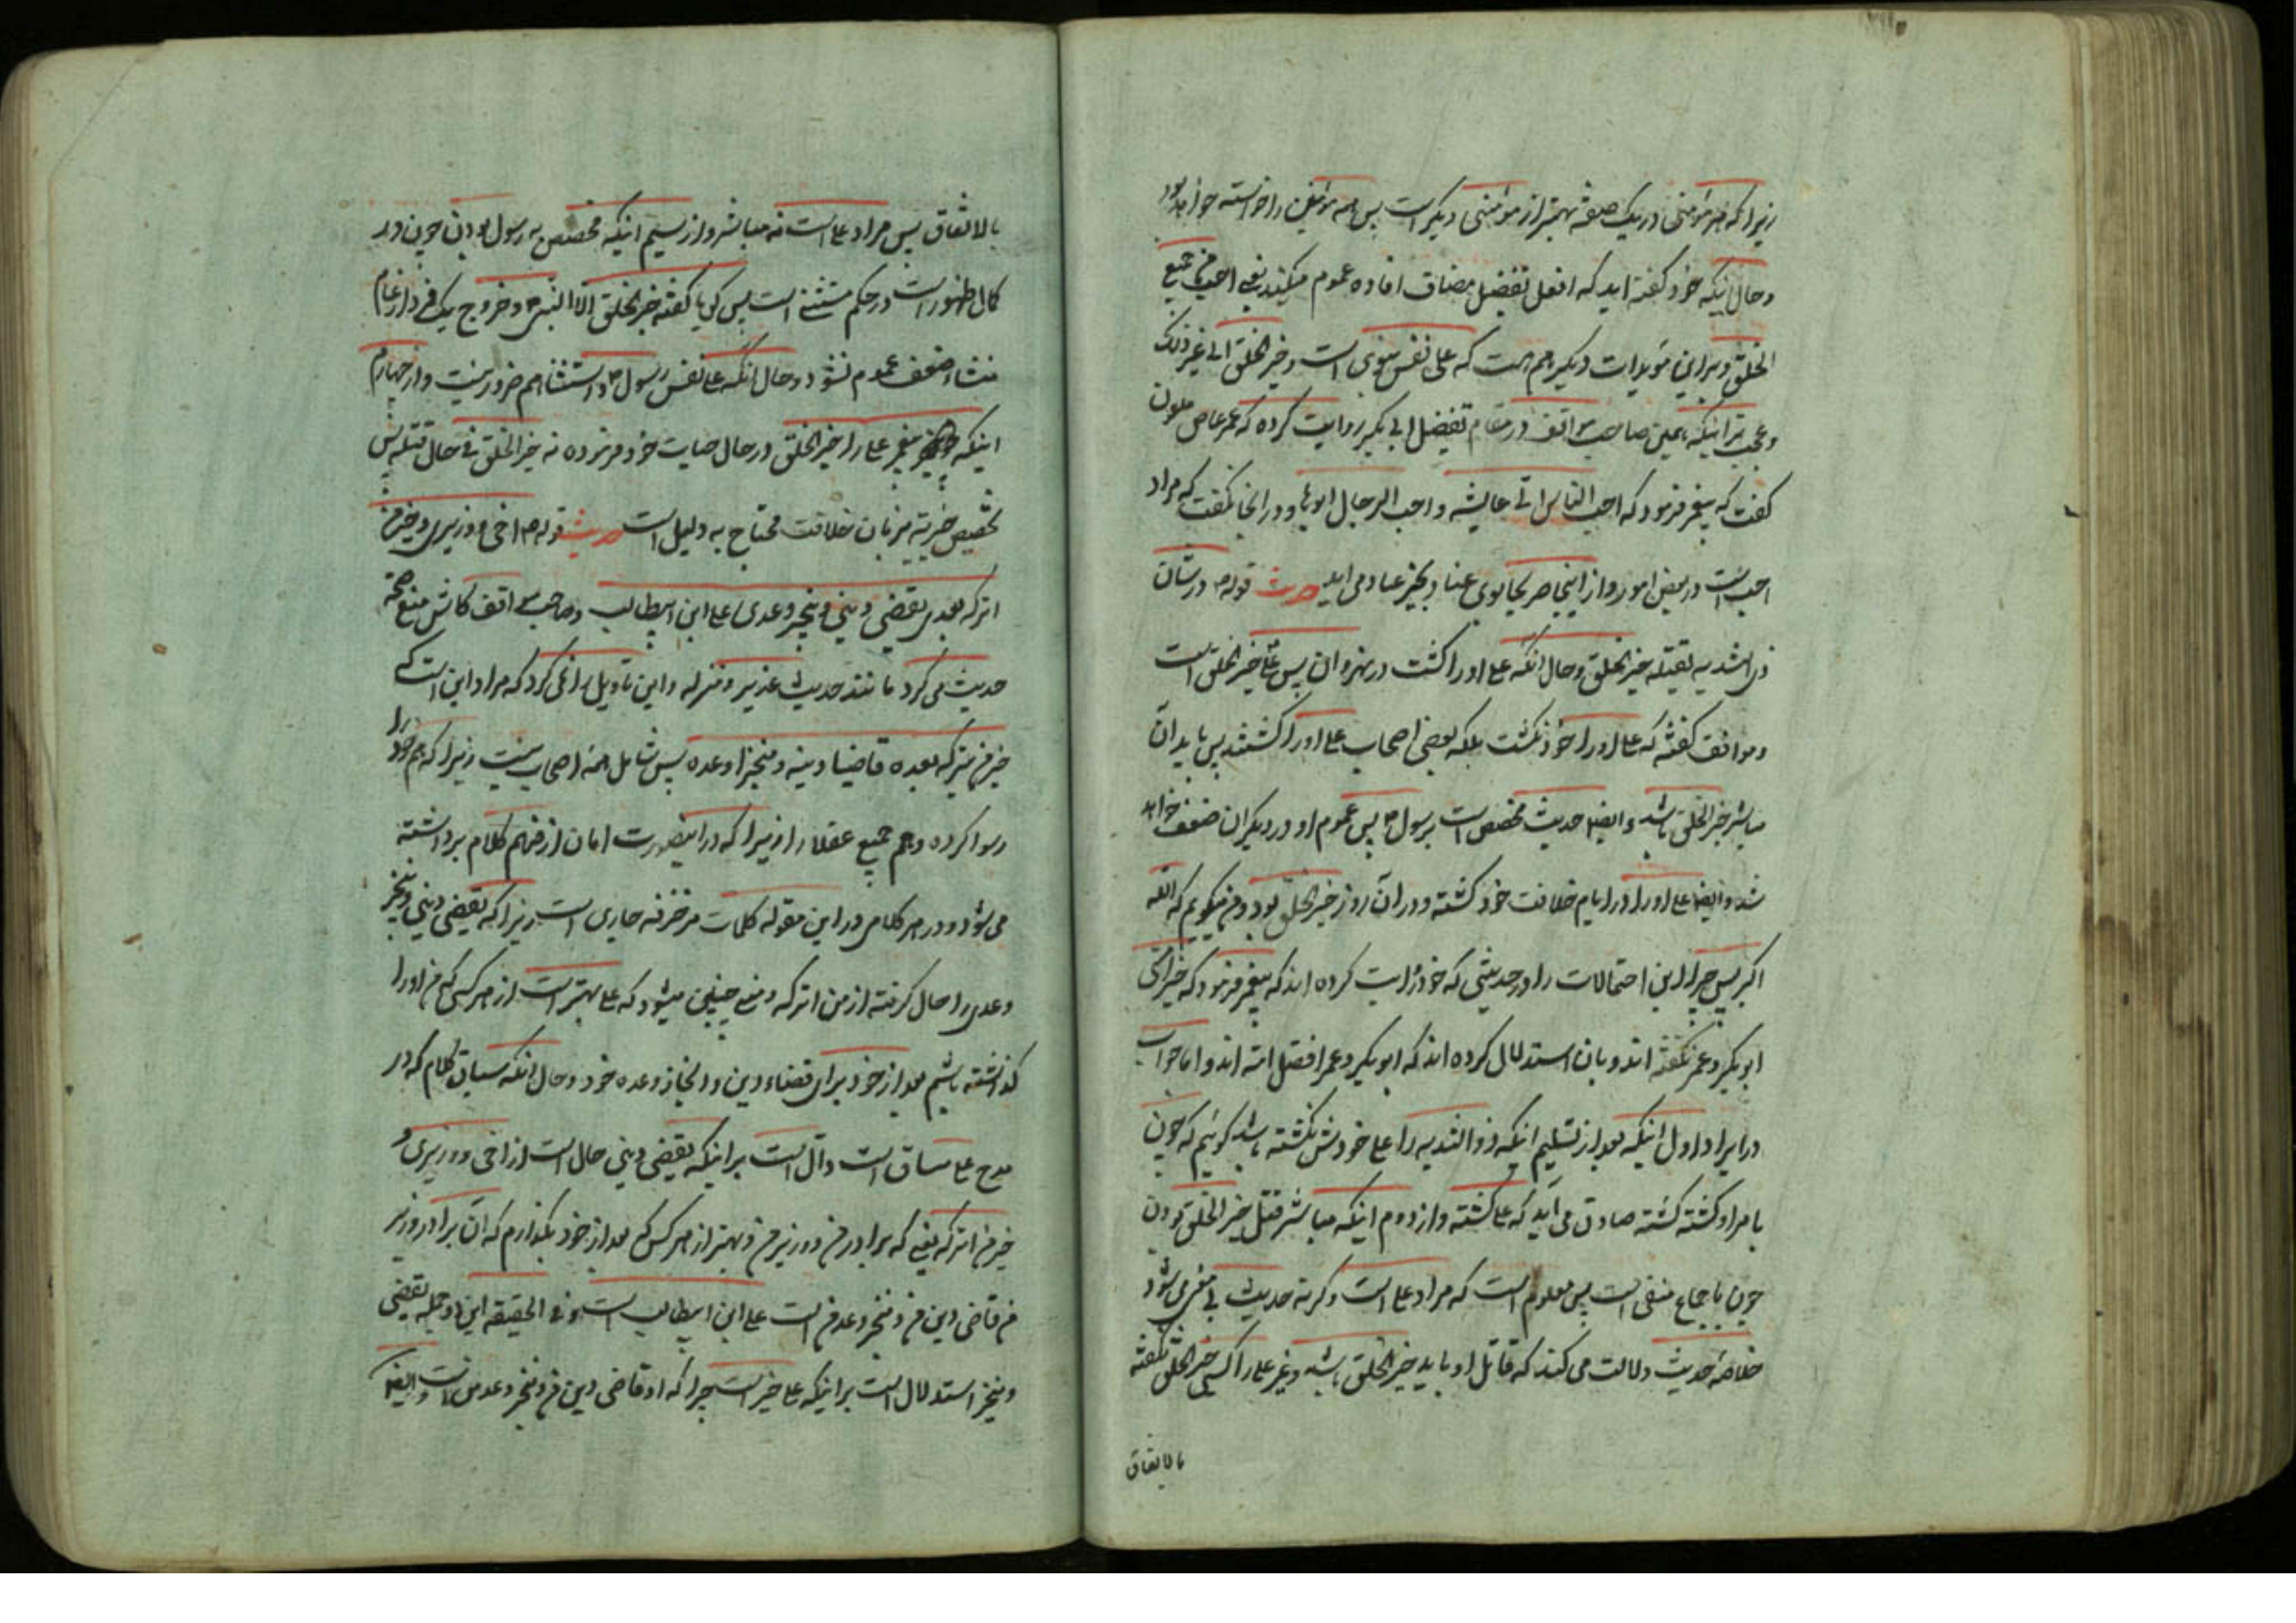 زیرا که هر مؤمنی در یک صفة بهتر از مؤمنی دیگر است پس همه مؤمنین را خواسته خواهد بود
و حال اینکه خود گفته اید که افعل تفضیل مضاف افاده عموم میکند یعنی احب من جمیع
الخلق و بر این مؤیدات دیگر هم هست که علی نفس نبوی است و خیر الخلق الی غیر ذلک
و عجب تر اینکه همین صاحب مواقف در مقام تفضیل ابی بکر روایت کرده که عمر عاص ملعون
گفت که پیغمبر فرمود که احب الناس الی عایشه و احب الرجال ابوها و در انجا نگفت که مراد
احب است در بعض امور و از اینجا هر بجا بوی عناد و بجز عناد می اید حدیث قوله ص در شان
ذی الثدیه یقتله خیر الخلق و حال انکه علی او را کشت در نهروان پس علی خیر الخلق است
و مواقف گفته که علی او را خود نکشت بلکه بعضی اصحاب علی او را کشتند پس باید ان
مباشر خیر الخلق باشد و ایضا حدیث مخصص است برسول ص پس عموم او در دیگران ضعیف خواهد
شد و ایضا علی او را در ایام خلافت خود کشته و در ان روز خیر الخلق بود و من میگویم که الله
اکبر پس چرا این احتمالات را در حدیثی که خود روایت کرده اند که پیغمبر فرمود که خیر امتی
ابو بکر و عمر نگفته اند و بان استدلال کرده اند که ابو بکر و عمر افضل امة اند و اما جواب
در ایراد اول اینکه بعد از تسلیم اینکه ذو الثدیه را علی خودش نکشته باشد گوئیم که چون
بامر او کشته گشته صادق می آید که علی کشته و از دوم اینکه مباشر قتل خیر الخلق بودن
چون باجماع منفی است پس معلوم است که مراد علی است و گرنه حدیث بی مغز می شود
خلاصه حدیث دلالت می کند که قاتل او باید خیر الخلق باشد و غیر علی را کسی خیر الخلق نگفته
بالاتفاق
بالاتفاق پس مراد علی است نه مباشر و از سیم اینکه مخصص به رسول بودن چون در
کمال ظهور است در حکم مستثنی است پس گویا گفته خیر الخلق الا النبی ص و خروج یک فرد از عام
منشاء ضعف عموم نشود و حال انکه علی نفس رسول ص و استثنا هم ضرور نیست و از چهارم
اینکه پیغمبر علی را خیر الخلق در حال حیات خود فرموده نه خیر الخلق فی حال قتله پس
تخصیص خیریة بزمان خلافت محتاج به دلیل است حدیث قوله ص اخی و وزیری و خیر من
اترکه بعدی یقضی دینی و ینجز وعدی علی ابن ابیطالب و صاحب مواقف کاش منع صحة
حدیث می کرد مانند حدیث غدیر و منزله و این تاویل را نمی کرد که مراد این است که
خیر من یترکه بعده قاضیا دینه و منجزا وعده پس شامل همه اصحاب نیست زیرا که هم خود را
رسوا کرده و هم جمیع عقلا را زیرا که در اینصورت امان از فهم کلام برداشته
می شود و در هر کلامی در این مقوله کلمات مزخرفه جاری است زیرا که یقضی دینی و ینجز
وعدی را حال گرفته از من اترکه و معنی چنین میشود که علی بهتر است از هر کسی که من او را
گذاشته باشم بعد از خود برای قضاء دین و انجاز وعده خود و حال انکه سیاق کلام که در
مدح علی مساق است دال است بر اینکه یقضی دینی حال است از اخی و وزیری و
خیر من اترکه یعنی که برادر من و وزیر من و بهتر از هر کس که بعد از خود بگذارم که ان برادر و وزیر
من قاضی دین من و منجز وعد من است علی ابن ابیطالب است و فی الحقیقه این دو جمله یقضی
و ینجز استدلال است بر اینکه علی خیر است چرا که او قاضی دین من و منجز وعد من است و ایضا